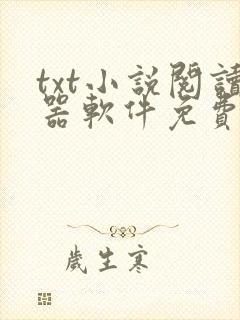 txt小說閱讀
器軟件免費
歲生寒